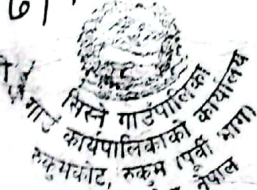 सिस्ने गाउँपालिका
गाउँ कार्यपालिकाको कार्यालय
रुकुमकोट, रुकुम (पूर्वी भाग)
नेपाल